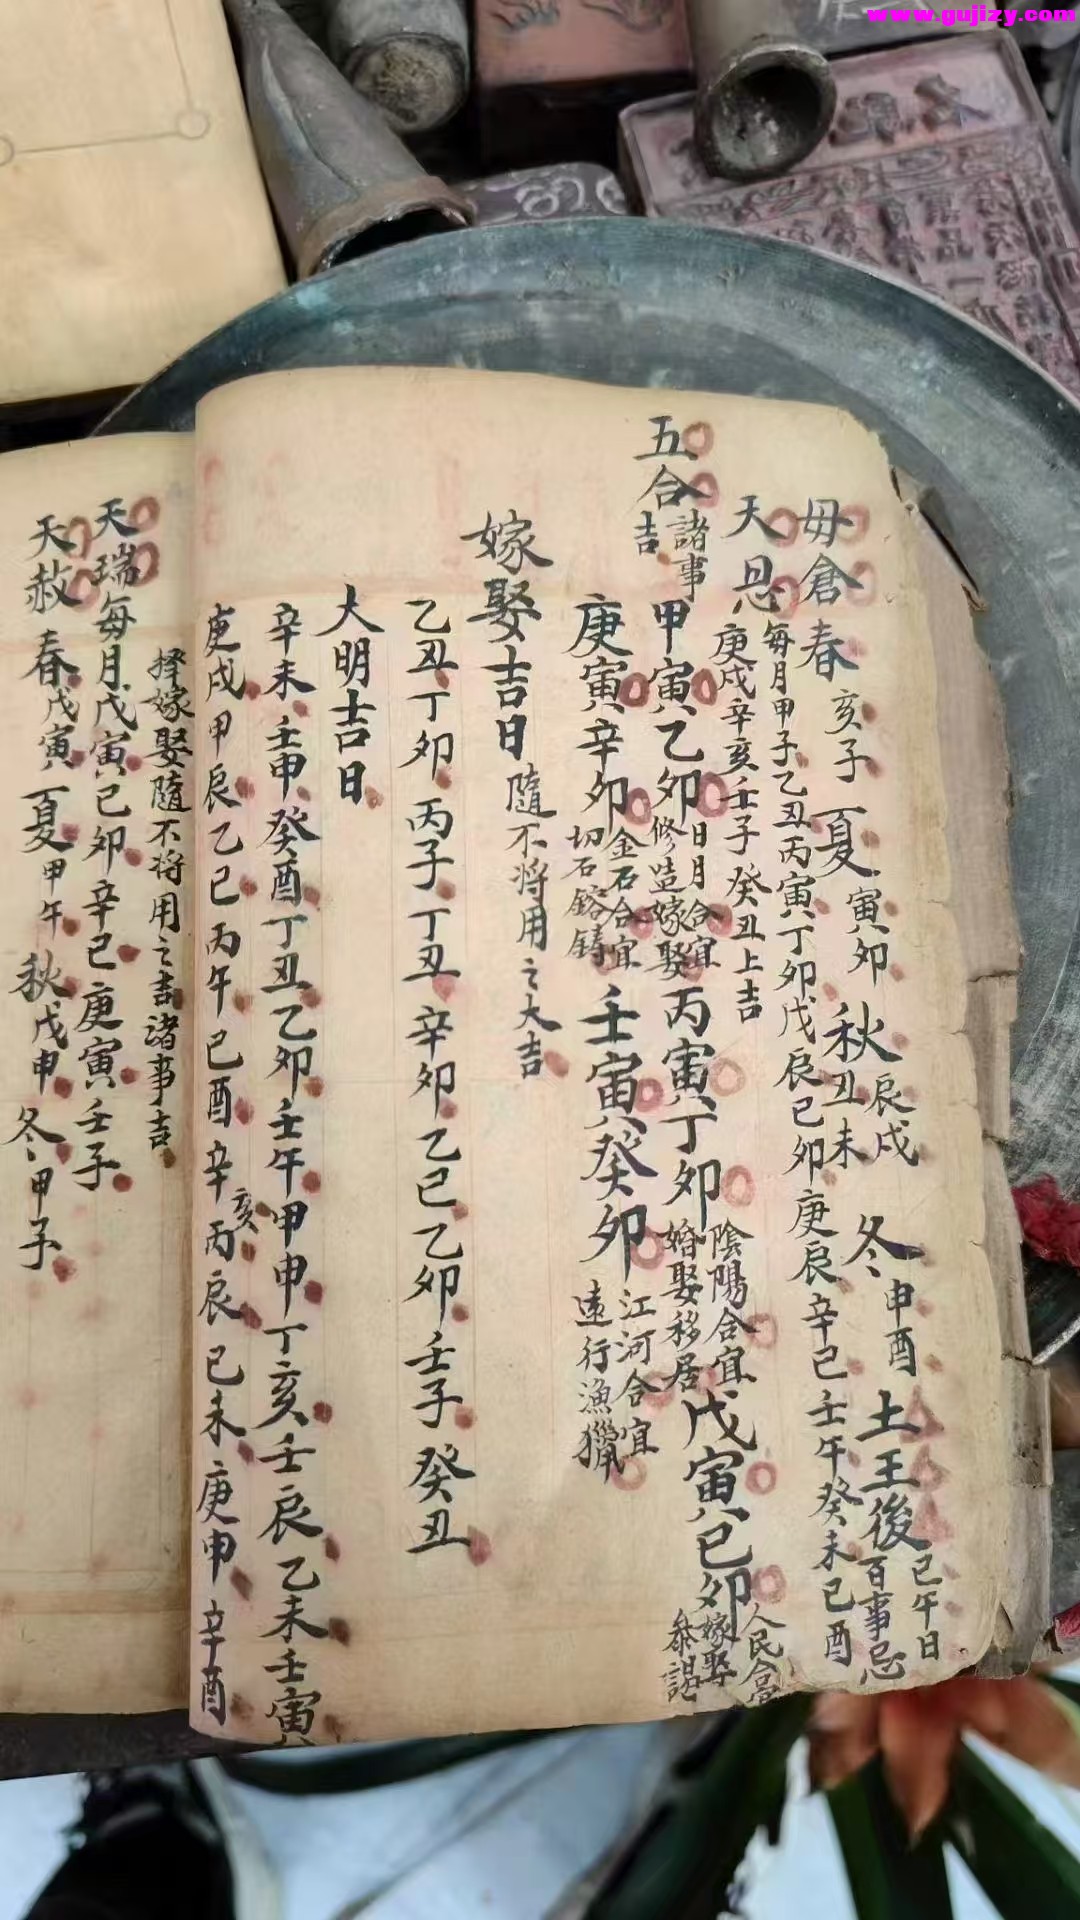 www.gujizy.com
母倉 春 亥子 夏 寅卯 秋 辰戌丑未 冬 申酉 土王後 巳午日百事忌
天恩 每月甲子乙丑丙寅丁卯戊辰己卯庚辰辛巳壬午癸未己酉
庚戌辛亥壬子癸丑上吉
五合 諸事吉 甲寅乙卯 日月合宜修造嫁娶 丙寅丁卯 陰陽合宜婚娶移居 戊寅己卯 人民合宜嫁娶
庚寅辛卯 金石合宜切石鎔鋳 壬寅癸卯 江河合宜遠行漁獵
嫁娶吉日 隨不将用之大吉
乙丑丁卯丙子丁丑辛卯乙巳乙卯壬子癸丑
大明吉日
辛未壬申癸酉丁丑乙卯壬午甲申丁亥壬辰乙未壬寅
庚戌甲辰乙巳丙午己酉辛亥丙辰己未庚申辛酉
擇嫁娶隨不将用之吉諸事吉
天瑞每月戊寅己卯辛巳庚寅壬子
天赦 春戊寅 夏甲午 秋戊申 冬甲子